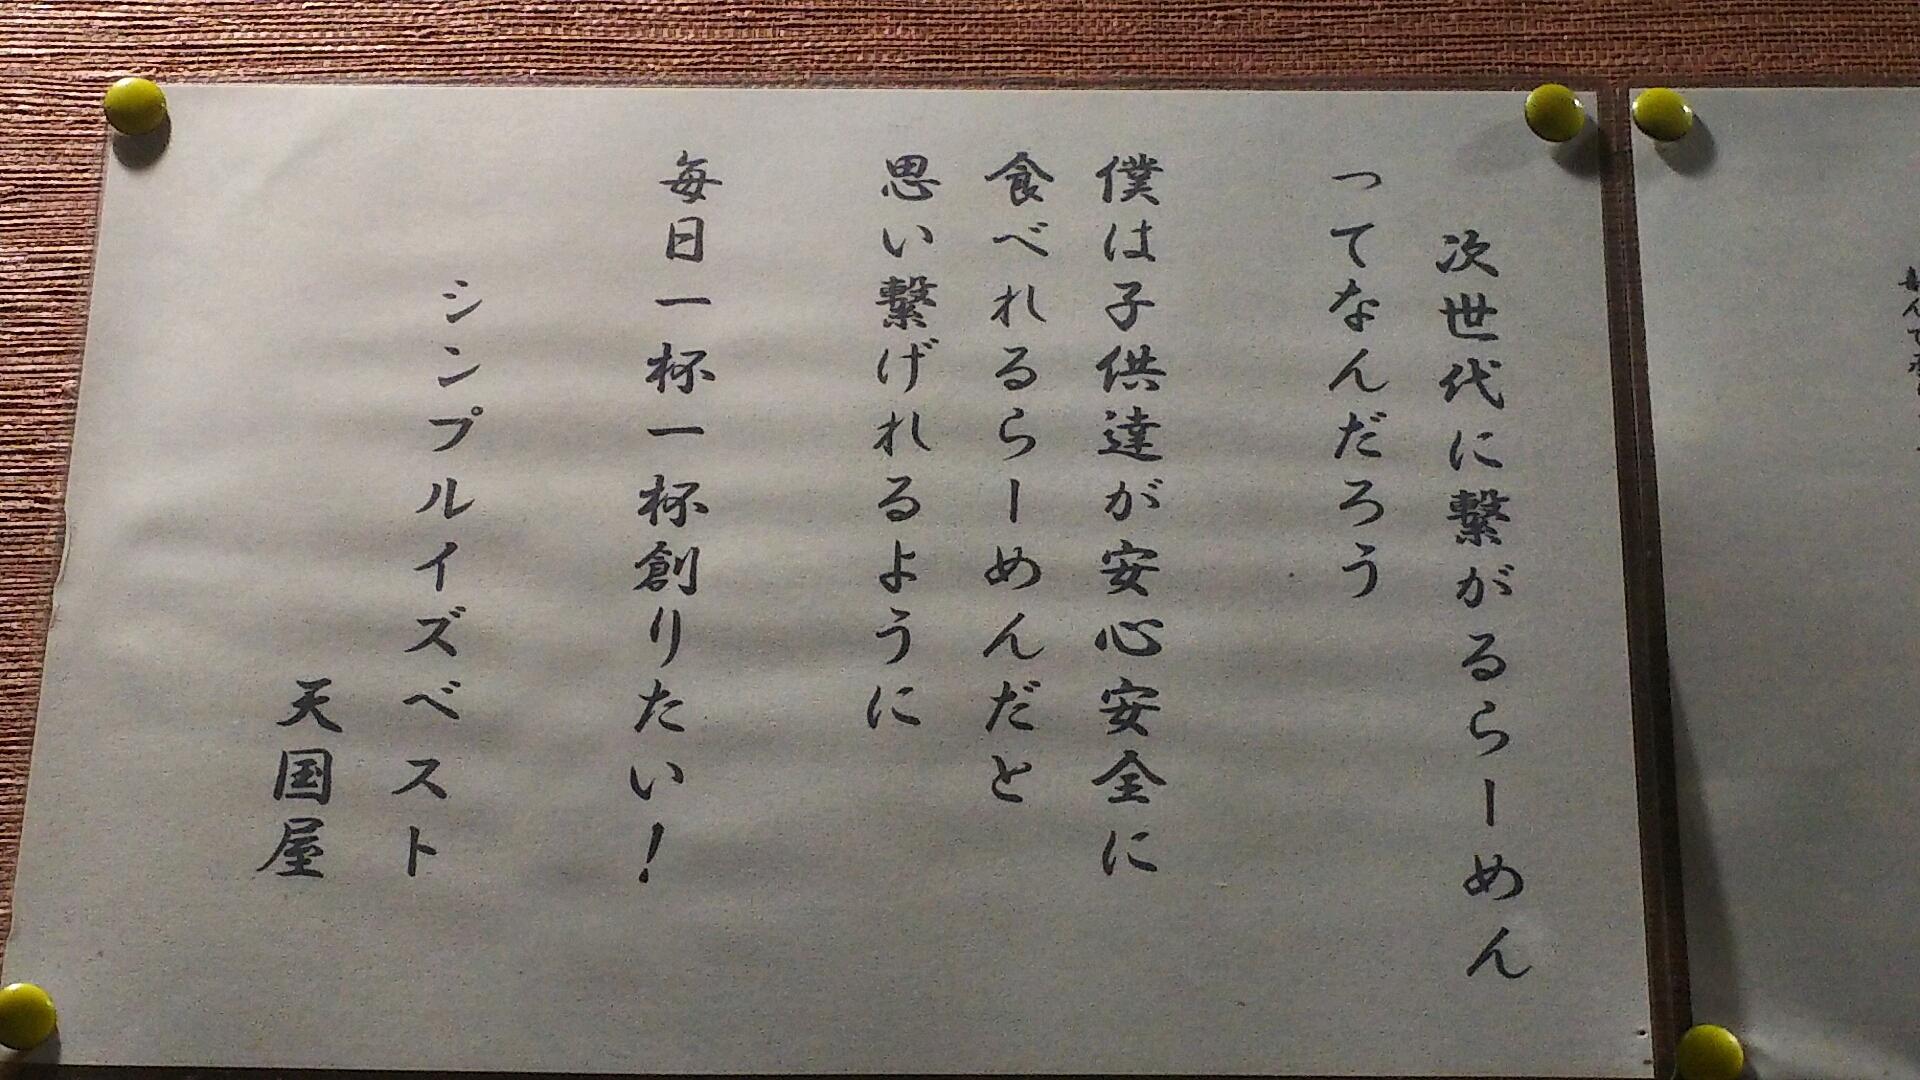 次世代に繋がるらーめん
ってなんだろう
僕は子供達が安心安全に
食べれるらーめんだと
思い繋げれるように
毎日一杯一杯創りたい！
シンプルイズベスト
天国屋